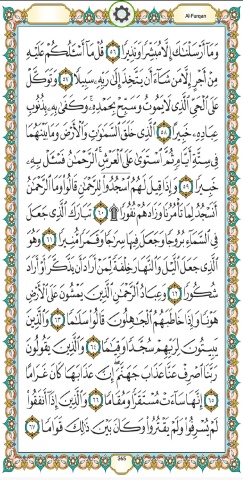 Al-Furqan
وَمَآ أَرْسَلْنَٰكَ إِلَّا مُبَشِّرًا وَنَذِيرًا ٥٦ قُلْ مَآ أَسْـَٔلُكُمْ عَلَيْهِ
مِنْ أَجْرٍ إِلَّا مَن شَآءَ أَن يَتَّخِذَ إِلَىٰ رَبِّهِۦ سَبِيلًا ٥٧ وَتَوَكَّلْ
عَلَى ٱلْحَىِّ ٱلَّذِى لَا يَمُوتُ وَسَبِّحْ بِحَمْدِهِۦ وَكَفَىٰ بِهِۦ بِذُنُوبِ
عِبَادِهِۦ خَبِيرًا ٥٨ ٱلَّذِى خَلَقَ ٱلسَّمَٰوَٰتِ وَٱلْأَرْضَ وَمَا بَيْنَهُمَا
فِى سِتَّةِ أَيَّامٍ ثُمَّ ٱسْتَوَىٰ عَلَى ٱلْعَرْشِ ٱلرَّحْمَٰنُ فَسْـَٔلْ بِهِۦ
خَبِيرًا ٥٩ وَإِذَا قِيلَ لَهُمُ ٱسْجُدُوا۟ لِلرَّحْمَٰنِ قَالُوا۟ وَمَا ٱلرَّحْمَٰنُ
أَنَسْجُدُ لِمَا تَأْمُرُنَا وَزَادَهُمْ نُفُورًا ۩ ٦٠ تَبَارَكَ ٱلَّذِى جَعَلَ
فِى ٱلسَّمَآءِ بُرُوجًا وَجَعَلَ فِيهَا سِرَٰجًا وَقَمَرًا مُّنِيرًا ٦١ وَهُوَ
ٱلَّذِى جَعَلَ ٱلَّيْلَ وَٱلنَّهَارَ خِلْفَةً لِّمَنْ أَرَادَ أَن يَذَّكَّرَ أَوْ أَرَادَ
شُكُورًا ٦٢ وَعِبَادُ ٱلرَّحْمَٰنِ ٱلَّذِينَ يَمْشُونَ عَلَى ٱلْأَرْضِ
هَوْنًا وَإِذَا خَاطَبَهُمُ ٱلْجَٰهِلُونَ قَالُوا۟ سَلَٰمًا ٦٣ وَٱلَّذِينَ
يَبِيتُونَ لِرَبِّهِمْ سُجَّدًا وَقِيَٰمًا ٦٤ وَٱلَّذِينَ يَقُولُونَ
رَبَّنَا ٱصْرِفْ عَنَّا عَذَابَ جَهَنَّمَ إِنَّ عَذَابَهَا كَانَ غَرَامًا
٦٥ إِنَّهَا سَآءَتْ مُسْتَقَرًّا وَمُقَامًا ٦٦ وَٱلَّذِينَ إِذَآ أَنفَقُوا۟
لَمْ يُسْرِفُوا۟ وَلَمْ يَقْتُرُوا۟ وَكَانَ بَيْنَ ذَٰلِكَ قَوَامًا ٦٧
365